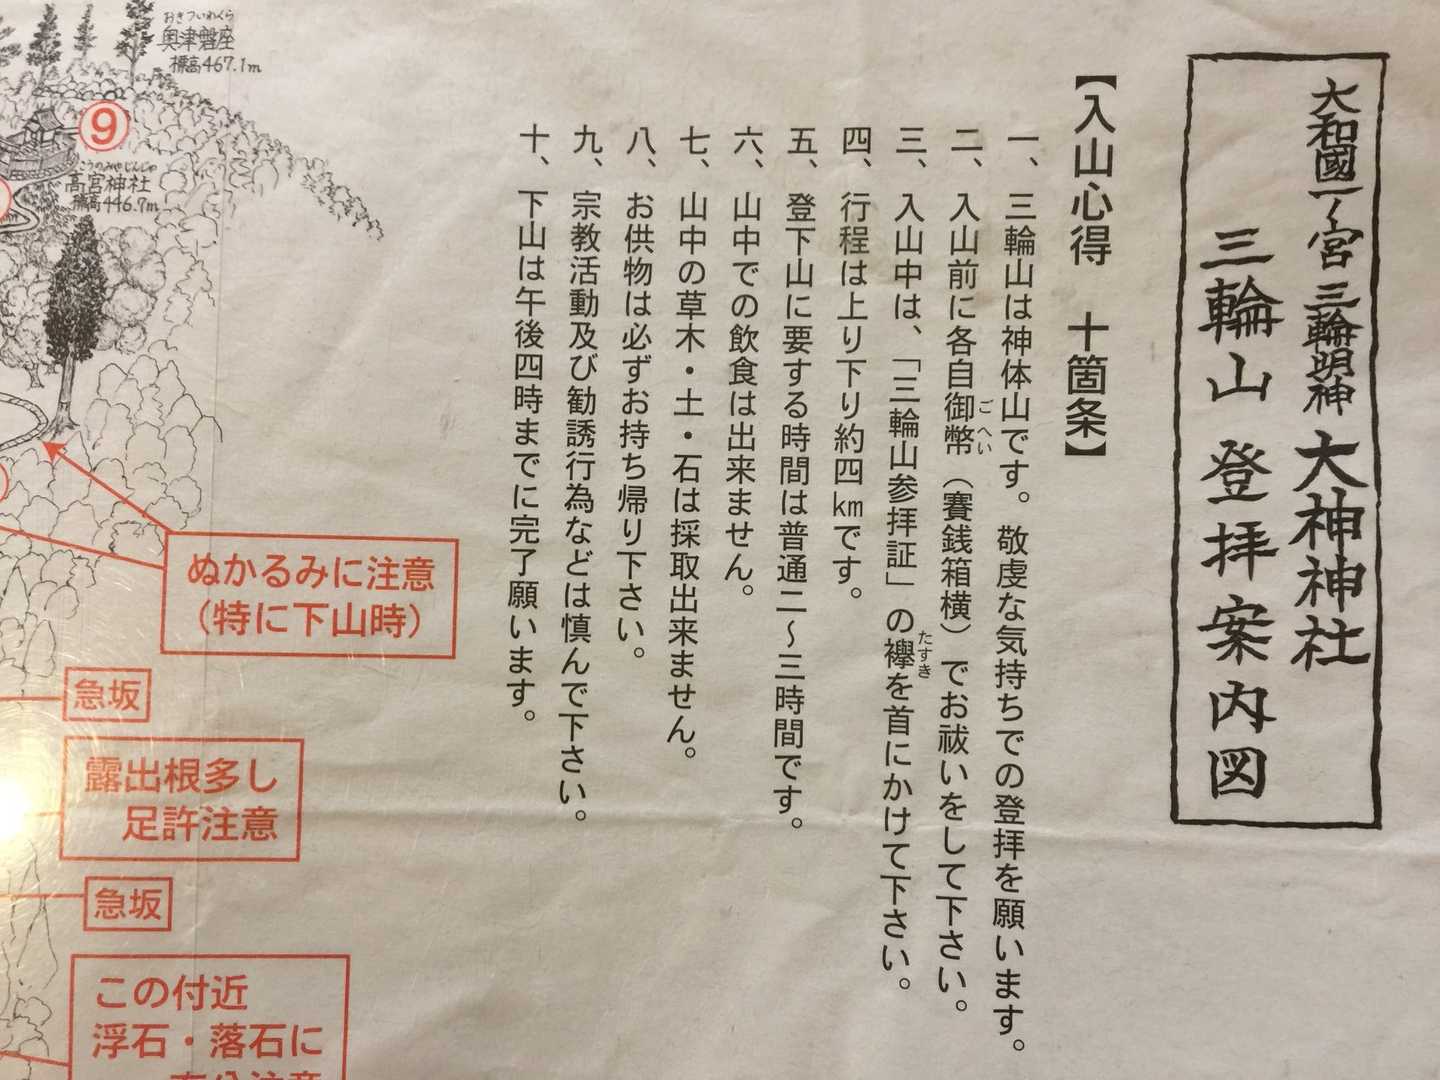 大和國一ノ宮 三輪明神 大神神社
三輪山登拝案内図
【入山心得 十箇条】
一、三輪山は神体山です。敬虔な気持ちでの登拝を願います。
二、入山前に各自御幣（賽銭箱横）でお祓いをして下さい。
ごへい
三、入山中は、「三輪山参拝証」の襷を首にかけて下さい。
たすき
四、行程は上り下り約四㎞です。
五、登下山に要する時間は普通二〜三時間です。
六、山中での飲食は出来ません。
七、山中の草木・土・石は採取出来ません。
八、お供物は必ずお持ち帰り下さい。
九、宗教活動及び勧誘行為などは慎んで下さい。
十、下山は午後四時までに完了願います。
おきついわくら
奥津磐座
標高467.1m
9
こうのみやじんじゃ
高宮神社
標高446.7m
ぬかるみに注意
（特に下山時）
急坂
露出根多し
足許注意
急坂
この付近
浮石・落石に